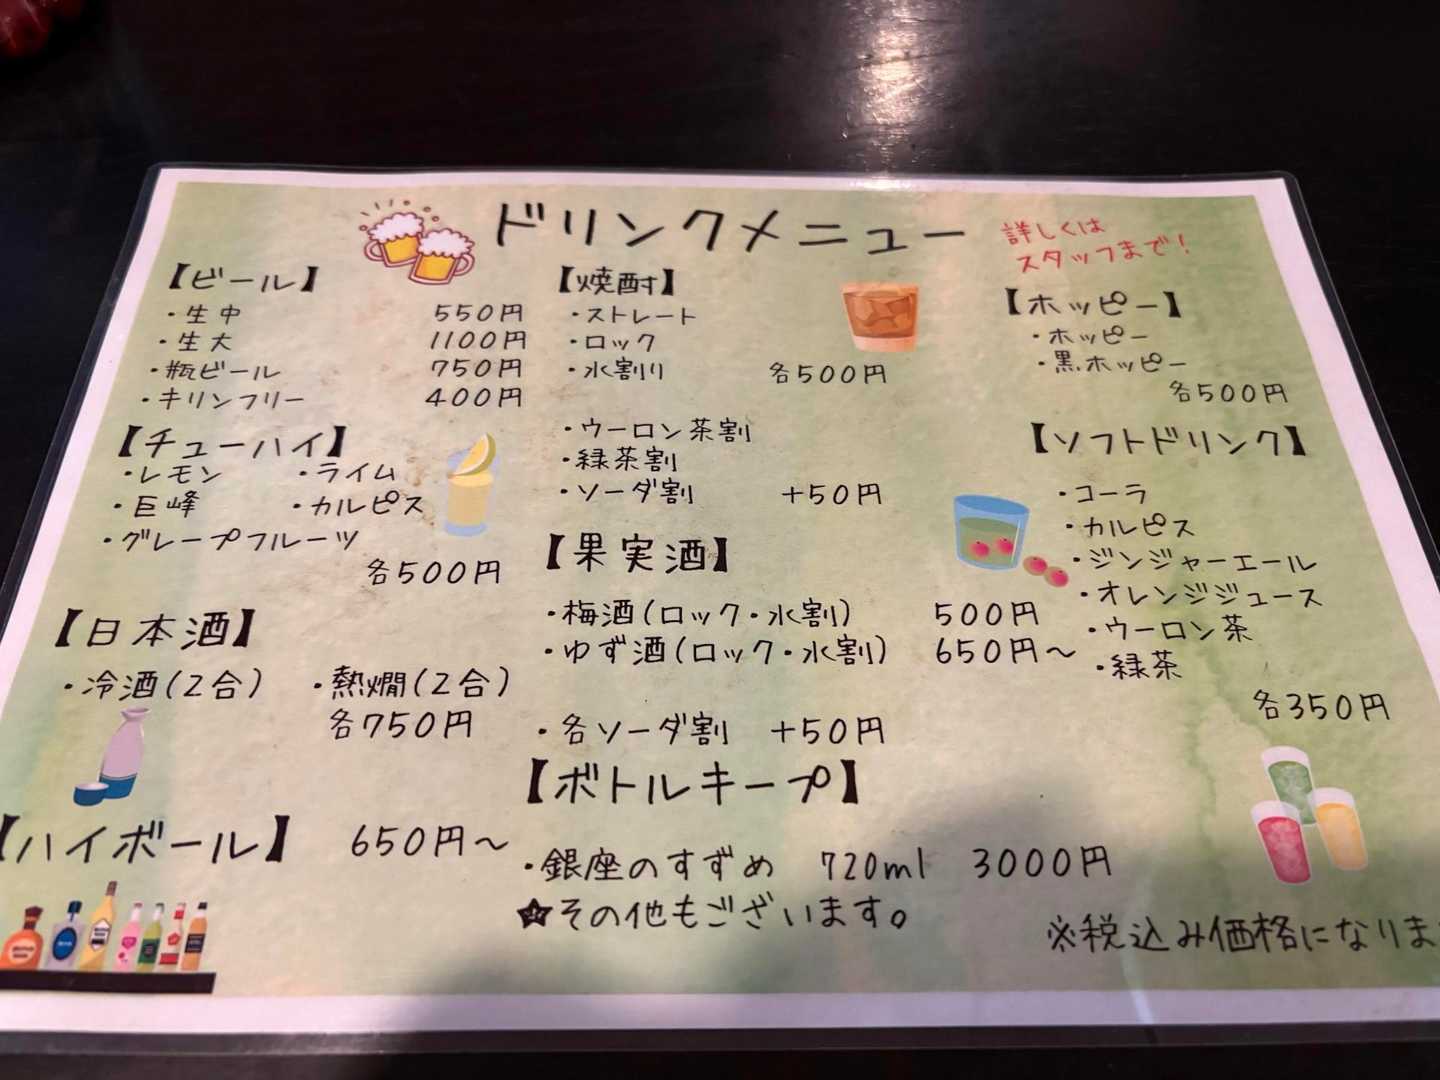 ドリンクメニュー
詳しくは
スタッフまで!
【ビール】
・生中 550円
・生大 1100円
・瓶ビール 750円
・キリンフリー 400円
【チューハイ】
・レモン ・ライム
・巨峰 ・カルピス
・グレープフルーツ
各500円
【日本酒】
・冷酒(2合) ・熱燗(2合)
各750円
【ハイボール】 650円～
【焼酎】
・ストレート
・ロック
・水割り 各500円
・ウーロン茶割
・緑茶割
・ソーダ割 +50円
【果実酒】
・梅酒(ロック・水割) 500円
・ゆず酒(ロック・水割) 650円～
・各ソーダ割 +50円
【ボトルキープ】
・銀座のすずめ 720ml 3000円
★その他もございます。
【ホッピー】
・ホッピー
・黒ホッピー
各500円
【ソフトドリンク】
・コーラ
・カルピス
・ジンジャーエール
・オレンジジュース
・ウーロン茶
・緑茶
各350円
※税込み価格になりま